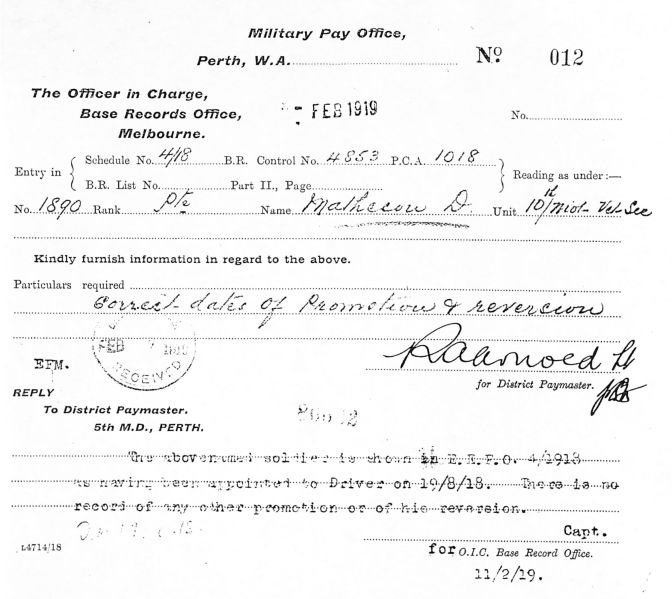 Military Pay Office,
Perth, W.A.
No. 012
The Officer in Charge,
Base Records Office,
Melbourne.
- FEB 1919
No.
Entry in
Schedule No. 4/18 B.R. Control No. 4853 P.C.A. 1018
B.R. List No. Part II., Page
Reading as under:—
No. 1890 Rank Pte Name Matheson D. Unit 10th Mob Vet Sec
Kindly furnish information in regard to the above.
Particulars required
Correct dates of Promotion & reversion
FEB 7
RECEIVED
EFM.
Lt
for District Paymaster.
REPLY
To District Paymaster.
5th M.D., PERTH.
The abovenamed soldier is shown in E.E.P.O. 4/1918
as having been appointed to Driver on 19/8/18. There is no
record of any other promotion or of his reversion.
Capt.
L4714/18
for O.I.C. Base Record Office.
11/2/19.